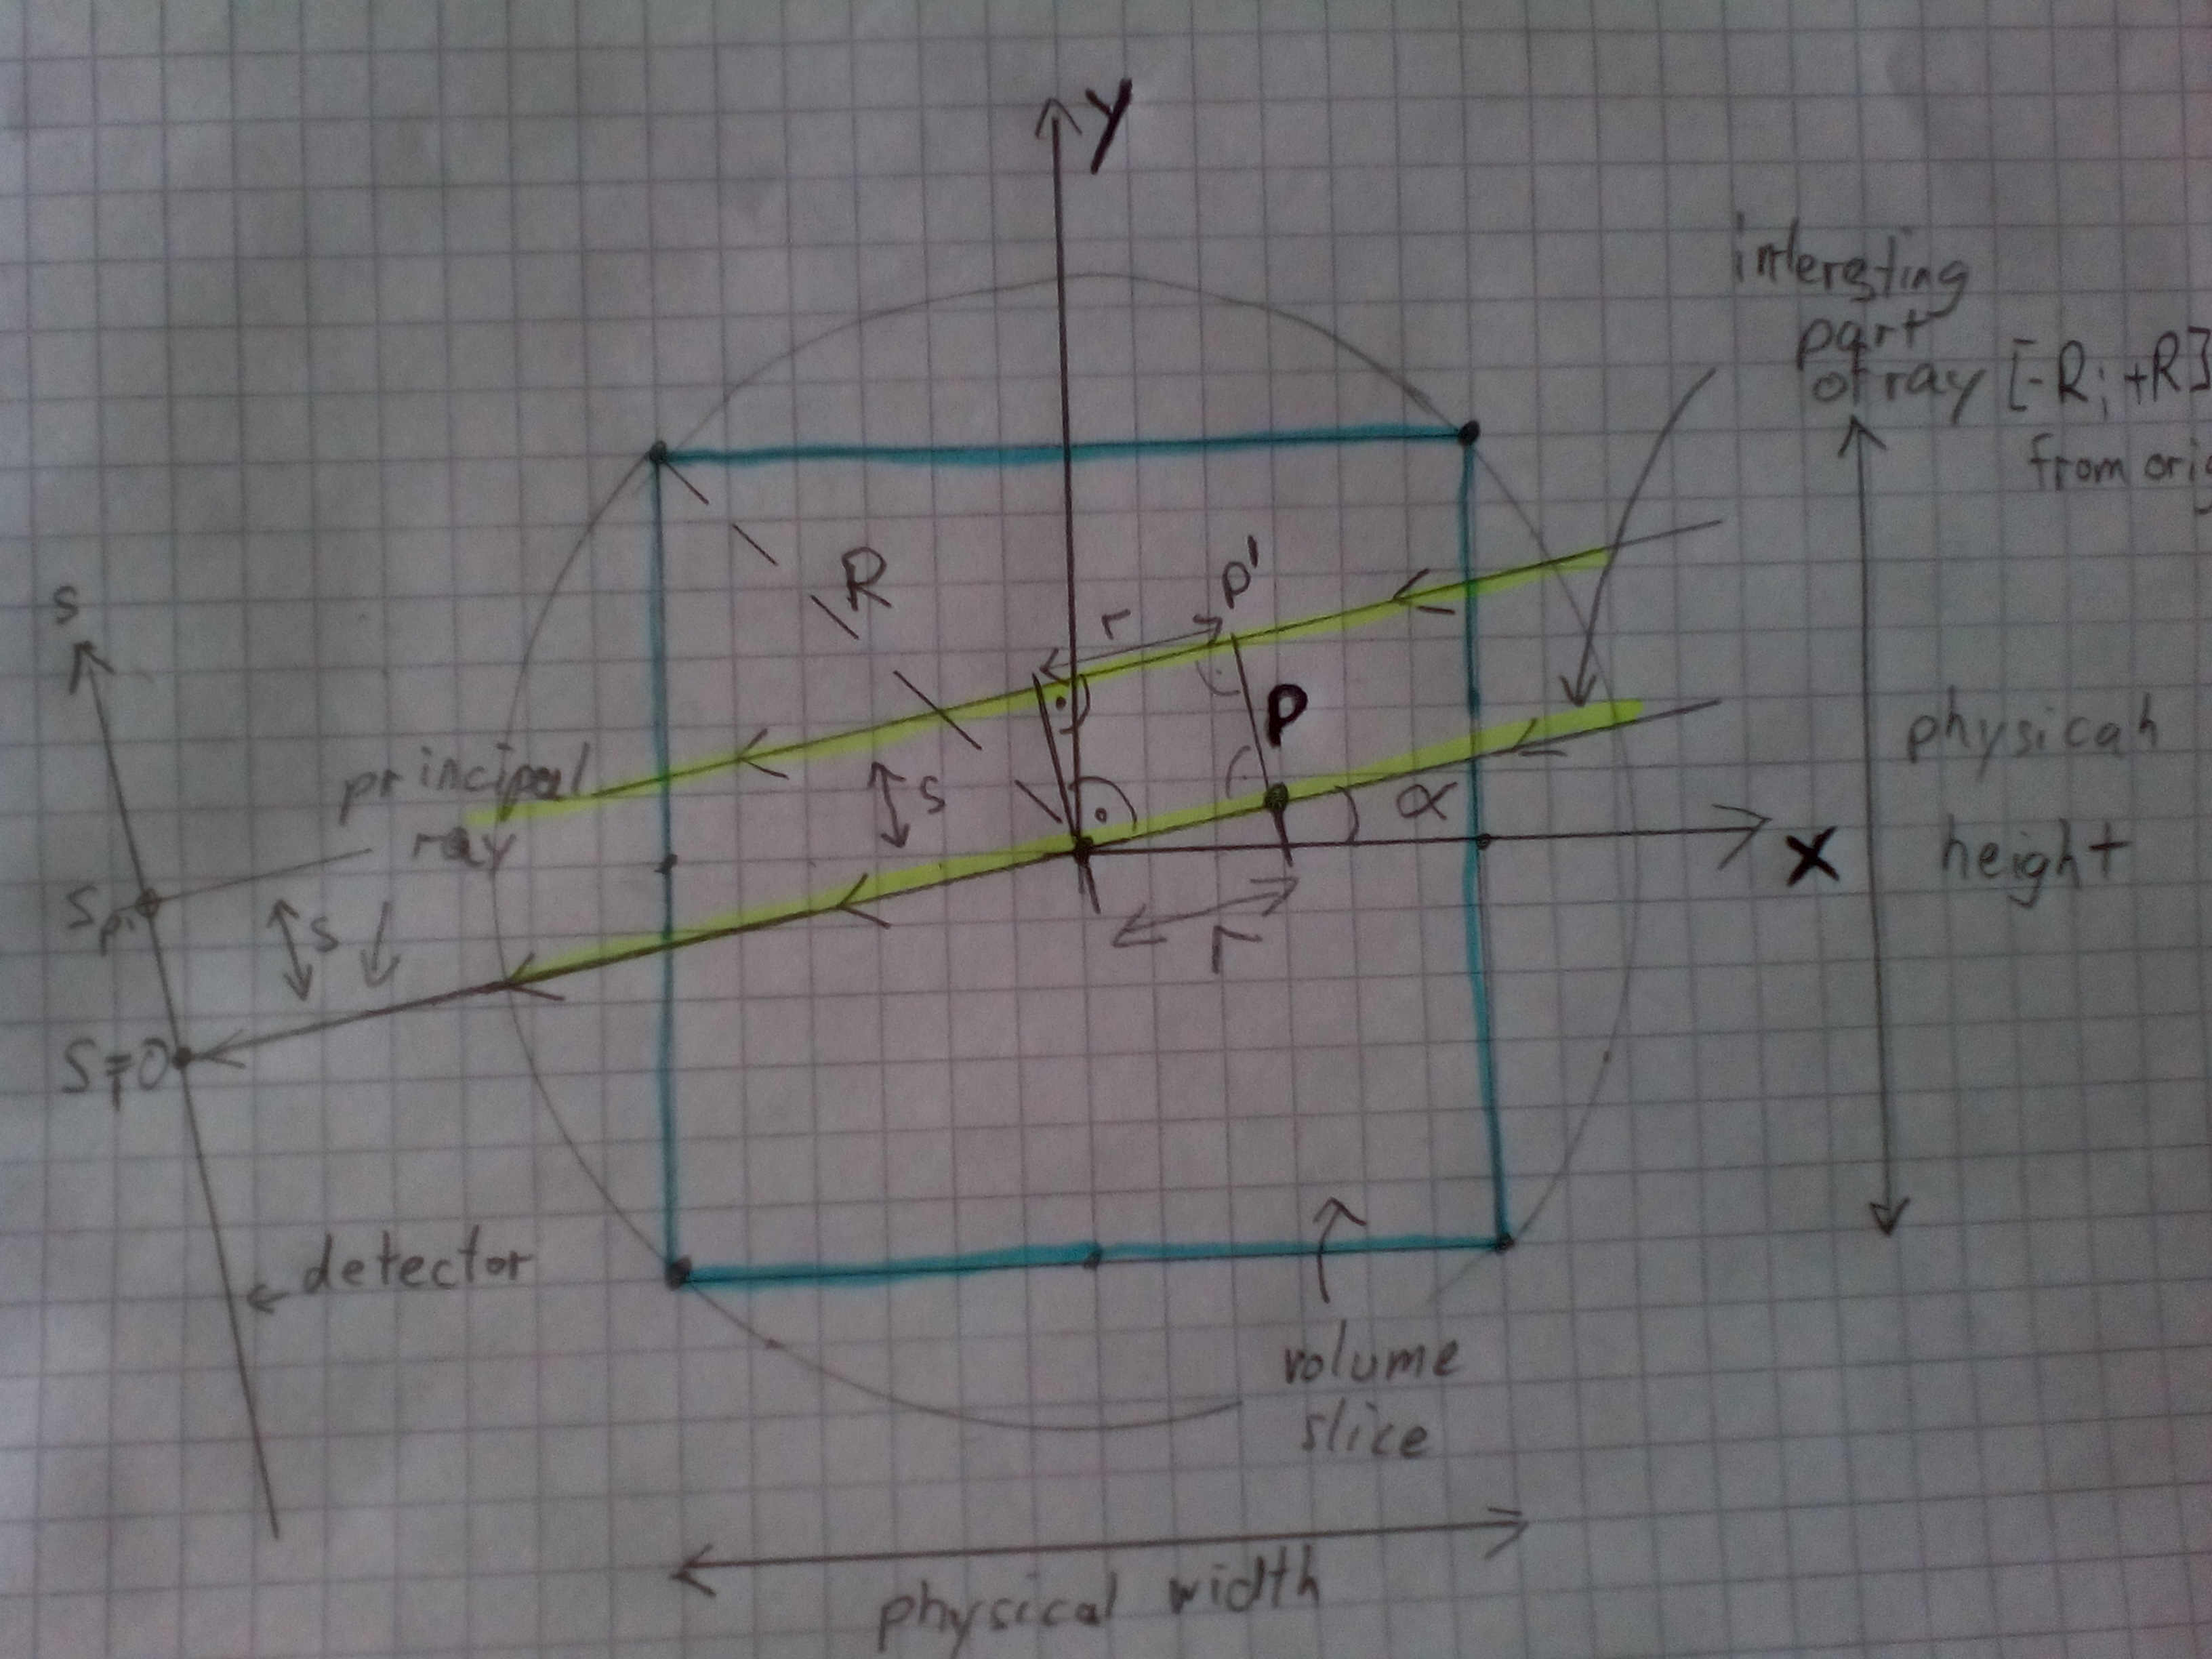 y
interesting
part
of ray [-R; +R]
from orig
R
r
P'
s
P
principal
ray
s
α
x
physical
height
s_P'
s
r
s=0
detector
volume
slice
physical width